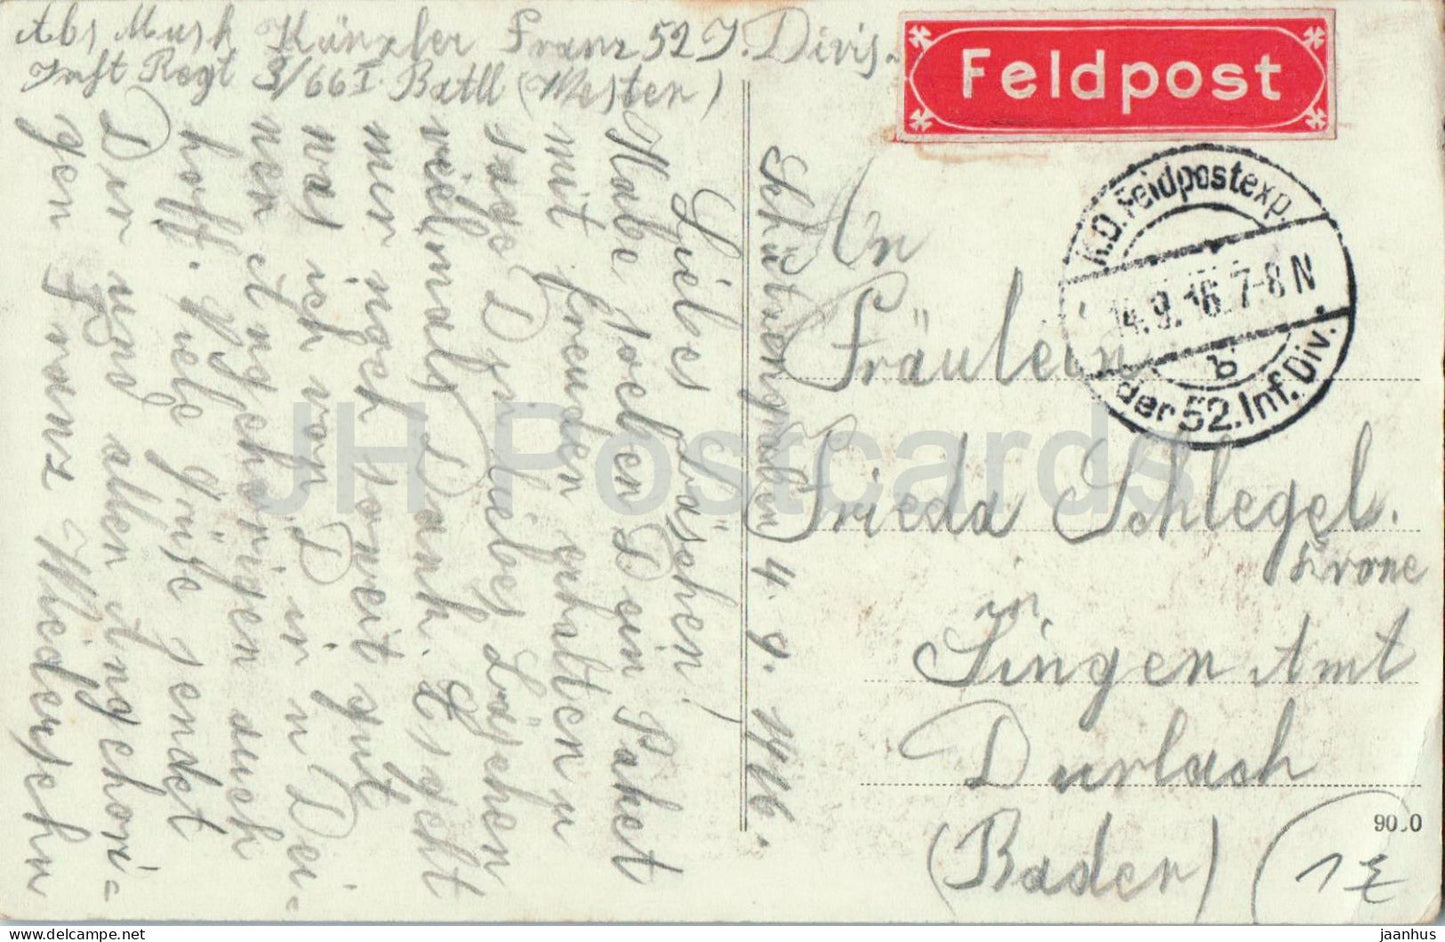 Abs Musk Känzler Franz 52 J. Divis.
Inft Regt 3/66 I. Batll (Westen)
Feldpost
K.D. Feldpostexp.
14.9.16. 7-8 N
b
der 52. Inf. Div.
Schützengraben 4. 9. 1916.
Liebes Bäschen!
Habe soeben Dein Paket
mit freuden erhalten u
sage Dir liebes Bäschen
vielmals Dank. Es geht
mir noch soweit gut
was ich von Dir u Dei-
nen Angehörigen auch
hoff. Viele Grüße sendet
Dir und allen Angehöri=
gen Franz Wiedersehn
An
Fräulein
Frieda Schlegel.
Krone
in
Singen Amt
Durlach
(Baden)
1 E
JH Postcards
jaanhus.ecrater.com
jaanhus.com